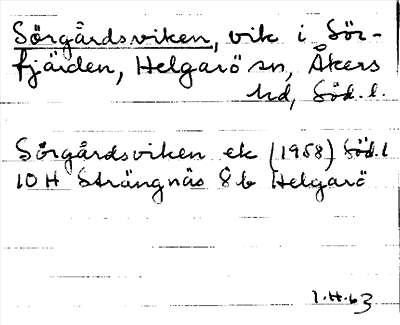 Sörgårdsviken, vik i Sör-
fjärden, Helgarö sn, Åkers
hd, Söd. l.
Sörgårdsviken ek (1958) Söd. l
10 H Strängnäs 8 b Helgarö
1.H.63